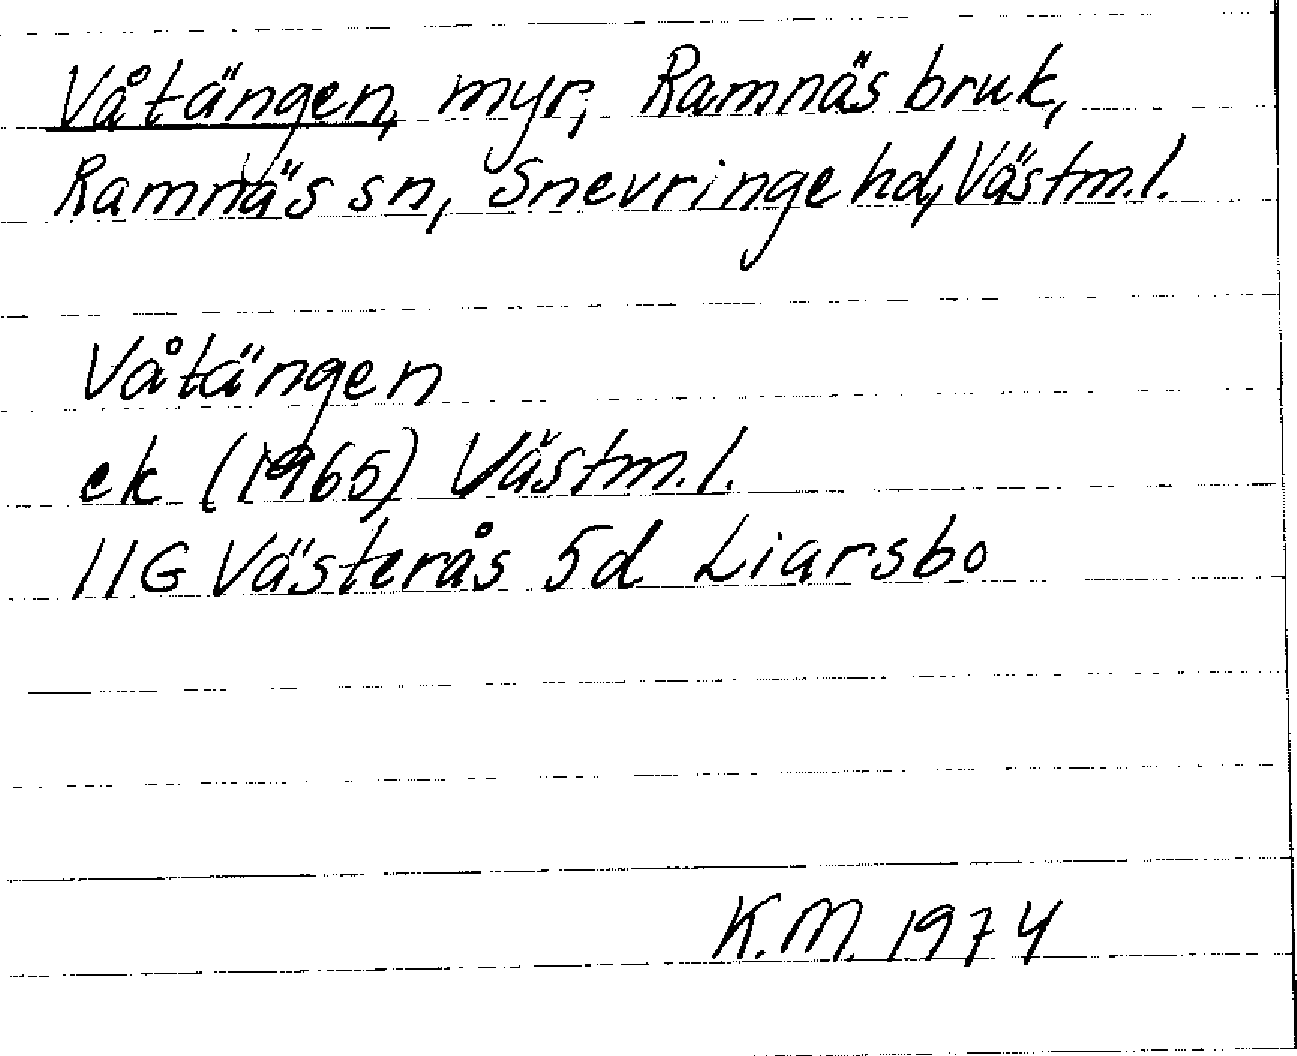 Våtängen, myr, Ramnäs bruk,
Ramnäs sn, Snevringe hd, Västm.l.
Våtängen
ek (1965) Västm.l.
11G Västerås 5d Liarsbo
K.M. 1974